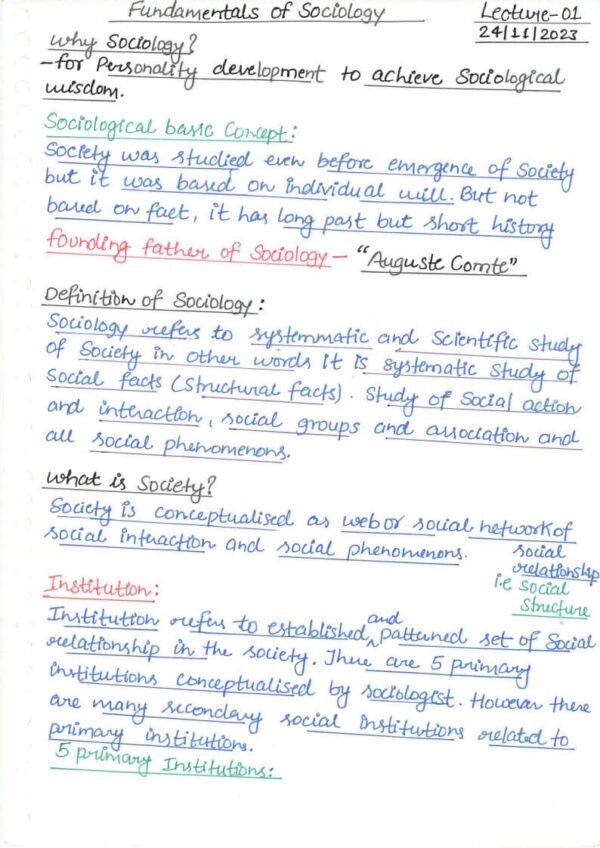 Fundamentals of Sociology
Lecture-01
24/11/2023
why Sociology?
-for Personality development to achieve Sociological
wisdom.
Sociological basic Concept:
Society was studied even before emergence of Society
but it was based on individual will. But not
based on fact, it has long past but short history
founding father of Sociology - "Auguste Comte"
Definition of Sociology:
Sociology refers to systemmatic and Scientific study
of Society in other words it is systematic study of
Social facts (Structural facts). Study of Social action
and interaction, social groups and association and
all social phenomenons.
what is Society?
Society is conceptualised as web or social network of
social interaction and social phenomenons.
social
relationship
i.e social
structure
Institution:
Institution refers to established, and patterned set of Social
relationship in the society. There are 5 primary
institutions conceptualised by sociologist. However there
are many secondary social institutions related to
primary institutions.
5 primary Institutions: